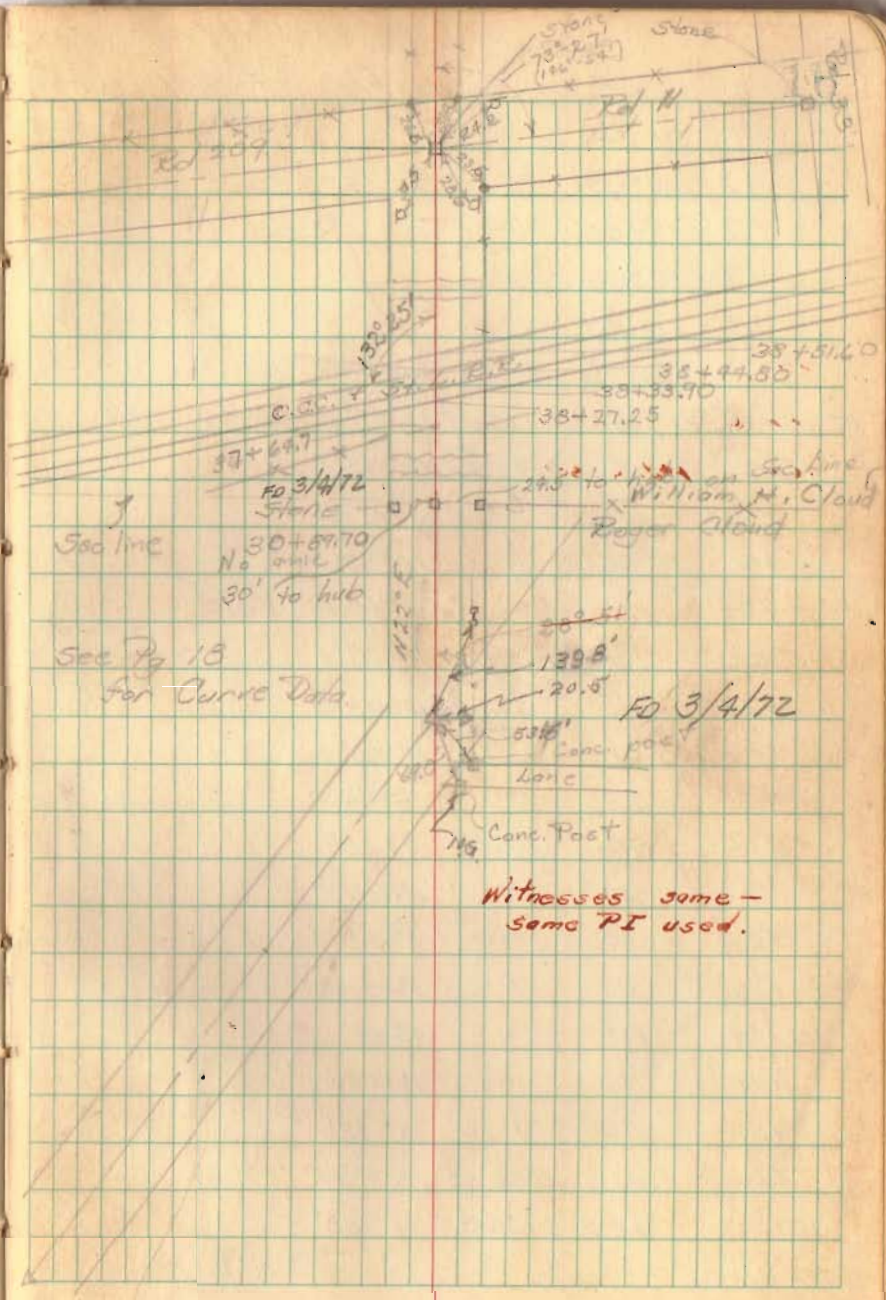 Stone
Stone
73°-27'
(146°-54')
Rd 209
Rd N
132° 25'
C.C.C. & St. L. R.R.
38+51.60
38+44.80
38+33.90
38+27.25
37+69.7
FD 3/4/72
Stone
24.5 to hub on Sec. line
William H. Cloud
Roger Cloud
Sec line
30+69.70
No
30' to hub
N22°E
See Pg 18
for Curve Data.
139.8'
20.5
FD 3/4/72
Conc. post
Lane
Conc. Post
N.G.
Witnesses same —
same PI used.